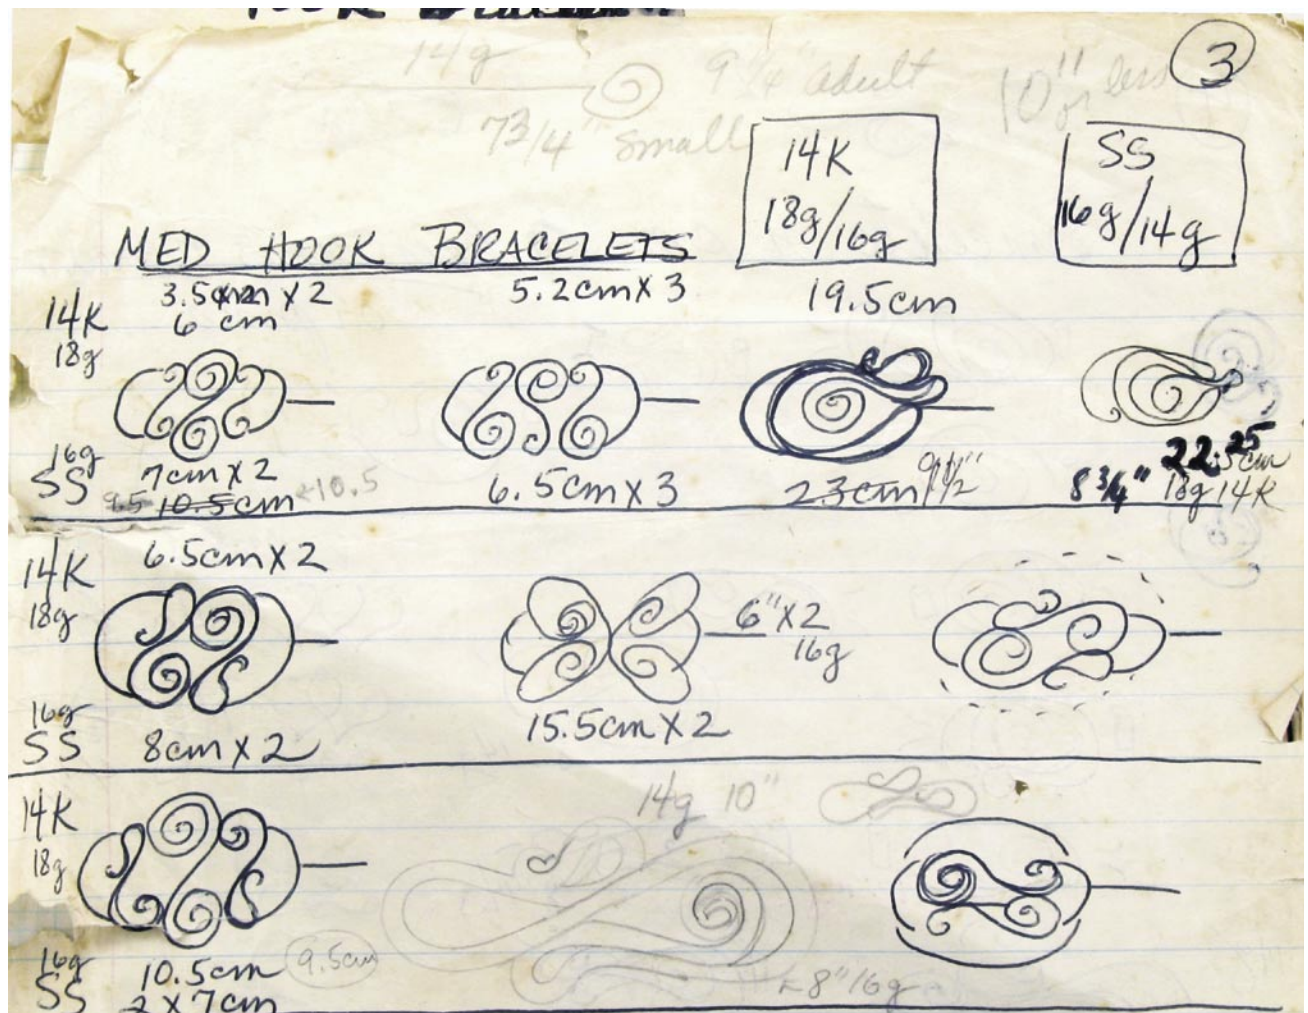 3
14g
9 1/4" adult
10" or less
7 3/4" small
14K
18g/16g
SS
16g/14g
MED HOOK BRACELETS
3.5cm x 2
6 cm
5.2cm x 3
19.5cm
14K
18g
16g
SS
7cm x 2
9.5 10.5cm ←10.5
6.5cm x 3
23cm 9 1/2"
22.25
cm
8 3/4" 18g 14K
14K
18g
6.5cm x 2
6" x 2
16g
16g
SS
8cm x 2
15.5cm x 2
14K
18g
14g 10"
16g
SS
10.5cm
9.5cm
2 x 7cm
8" 16g